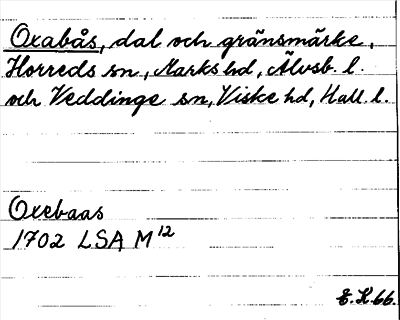 Oxabås, dal och gränsmärke,
Horreds sn, Marks hd, Älvsb. l.
och Veddinge sn, Viske hd, Hall. l.
Oxebaas
1702 LSA M12
E. K. 66.